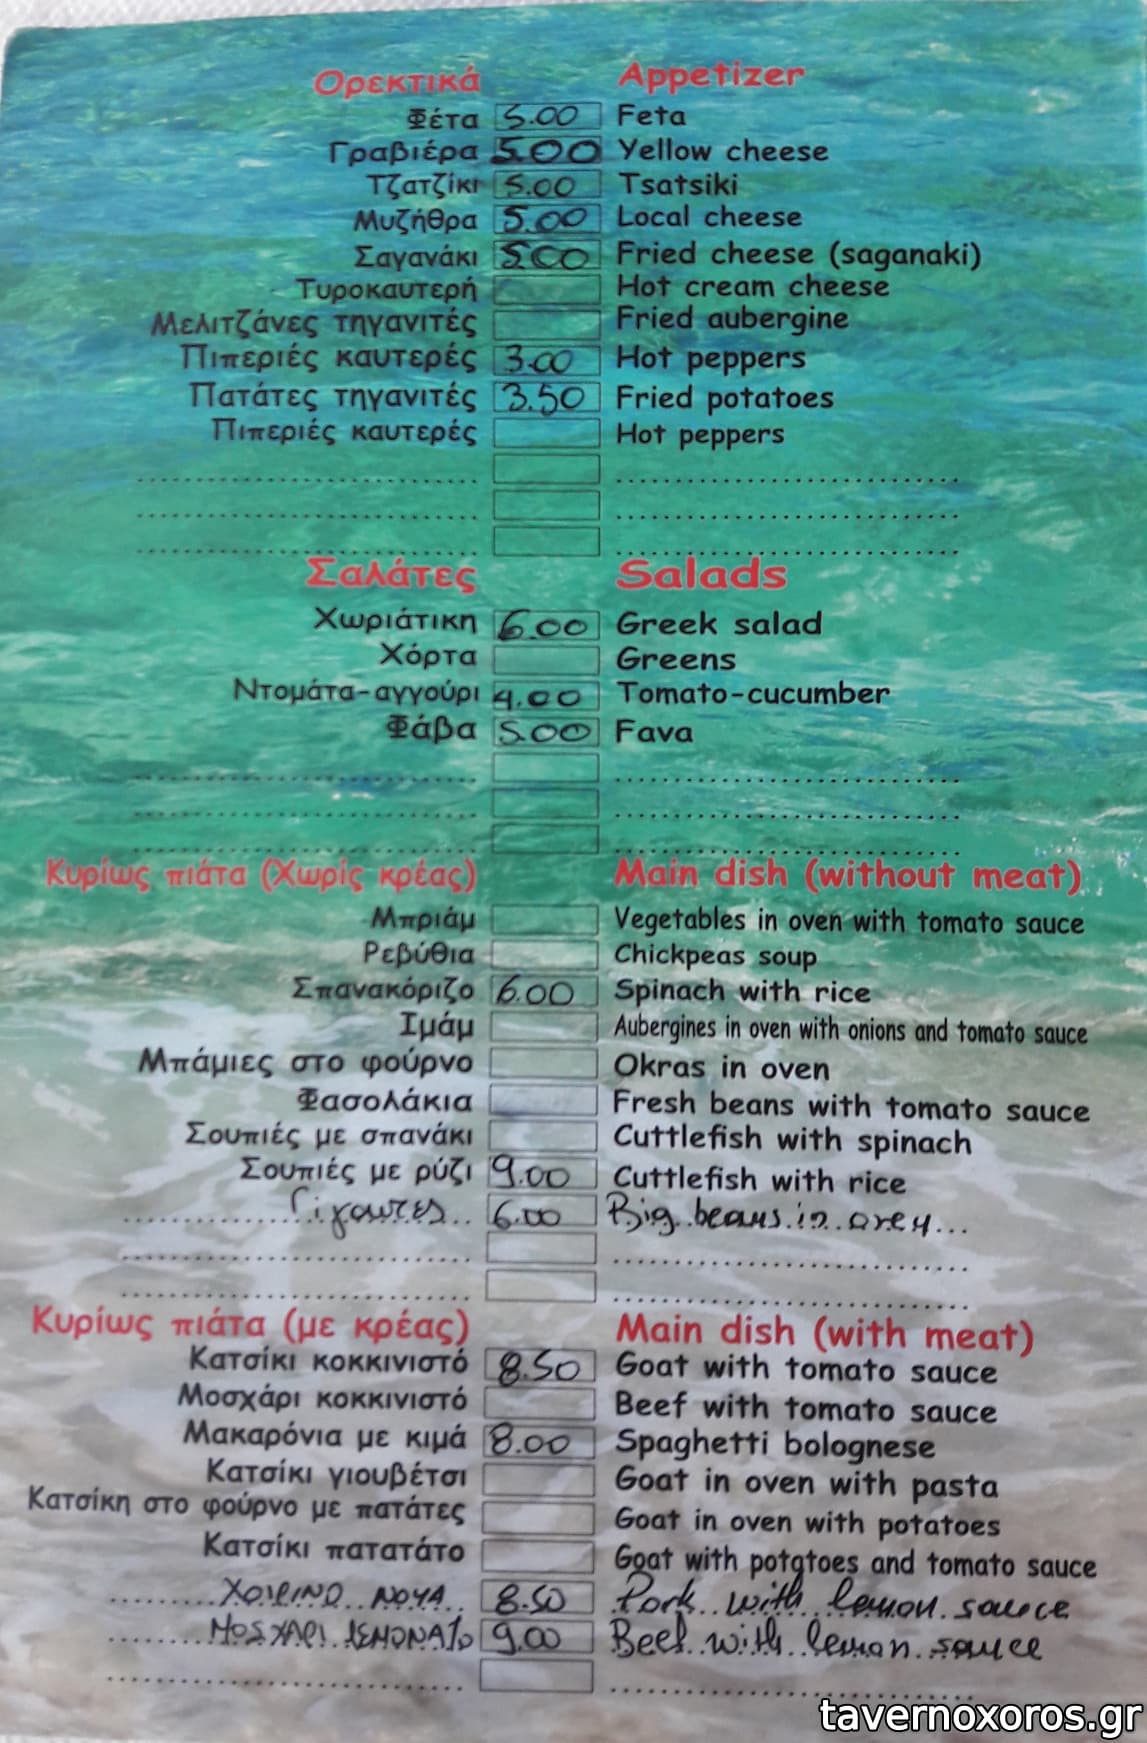 Ορεκτικά Appetizer
Φέτα 5.00 Feta
Γραβιέρα 5.00 Yellow cheese
Τζατζίκι 5.00 Tsatsiki
Μυζήθρα 5.00 Local cheese
Σαγανάκι 5.00 Fried cheese (saganaki)
Τυροκαυτερή Hot cream cheese
Μελιτζάνες τηγανιτές Fried aubergine
Πιπεριές καυτερές 3.00 Hot peppers
Πατάτες τηγανιτές 3.50 Fried potatoes
Πιπεριές καυτερές Hot peppers
Σαλάτες Salads
Χωριάτικη 6.00 Greek salad
Χόρτα Greens
Ντομάτα-αγγούρι 4.00 Tomato-cucumber
Φάβα 5.00 Fava
Κυρίως πιάτα (Χωρίς κρέας) Main dish (without meat)
Μπριάμ Vegetables in oven with tomato sauce
Ρεβύθια Chickpeas soup
Σπανακόριζο 6.00 Spinach with rice
Ιμάμ Aubergines in oven with onions and tomato sauce
Μπάμιες στο φούρνο Okras in oven
Φασολάκια Fresh beans with tomato sauce
Σουπιές με σπανάκι Cuttlefish with spinach
Σουπιές με ρύζι 9.00 Cuttlefish with rice
Γίγαντες 6.00 Big beans in oven
Κυρίως πιάτα (με κρέας) Main dish (with meat)
Κατσίκι κοκκινιστό 8.50 Goat with tomato sauce
Μοσχάρι κοκκινιστό Beef with tomato sauce
Μακαρόνια με κιμά 8.00 Spaghetti bolognese
Κατσίκι γιουβέτσι Goat in oven with pasta
Κατσίκη στο φούρνο με πατάτες Goat in oven with potatoes
Κατσίκι πατατάτο Goat with potatoes and tomato sauce
ΧΟΙΡΙΝΟ ΝΟΥΑ 8.50 Pork with lemon sauce
ΜΟΣΧΑΡΙ ΛΕΜΟΝΑΤΟ 9.00 Beef with lemon sauce
tavernoxoros.gr